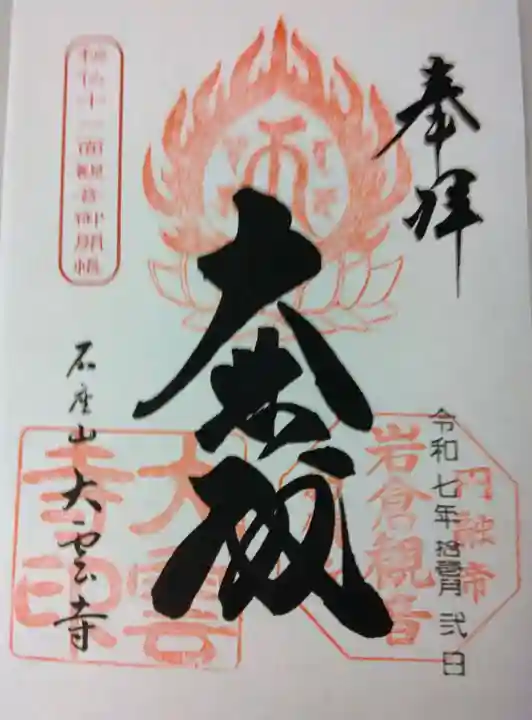 奉拝
円融帝
岩倉観音
令和七年拾壹月弐日
大悲殿
秘仏十一面観音御開帳
石座山大雲寺
大雲
寺印